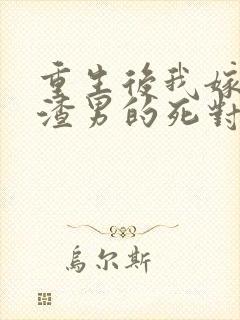 重生後我嫁
渣男的死對
烏尔斯